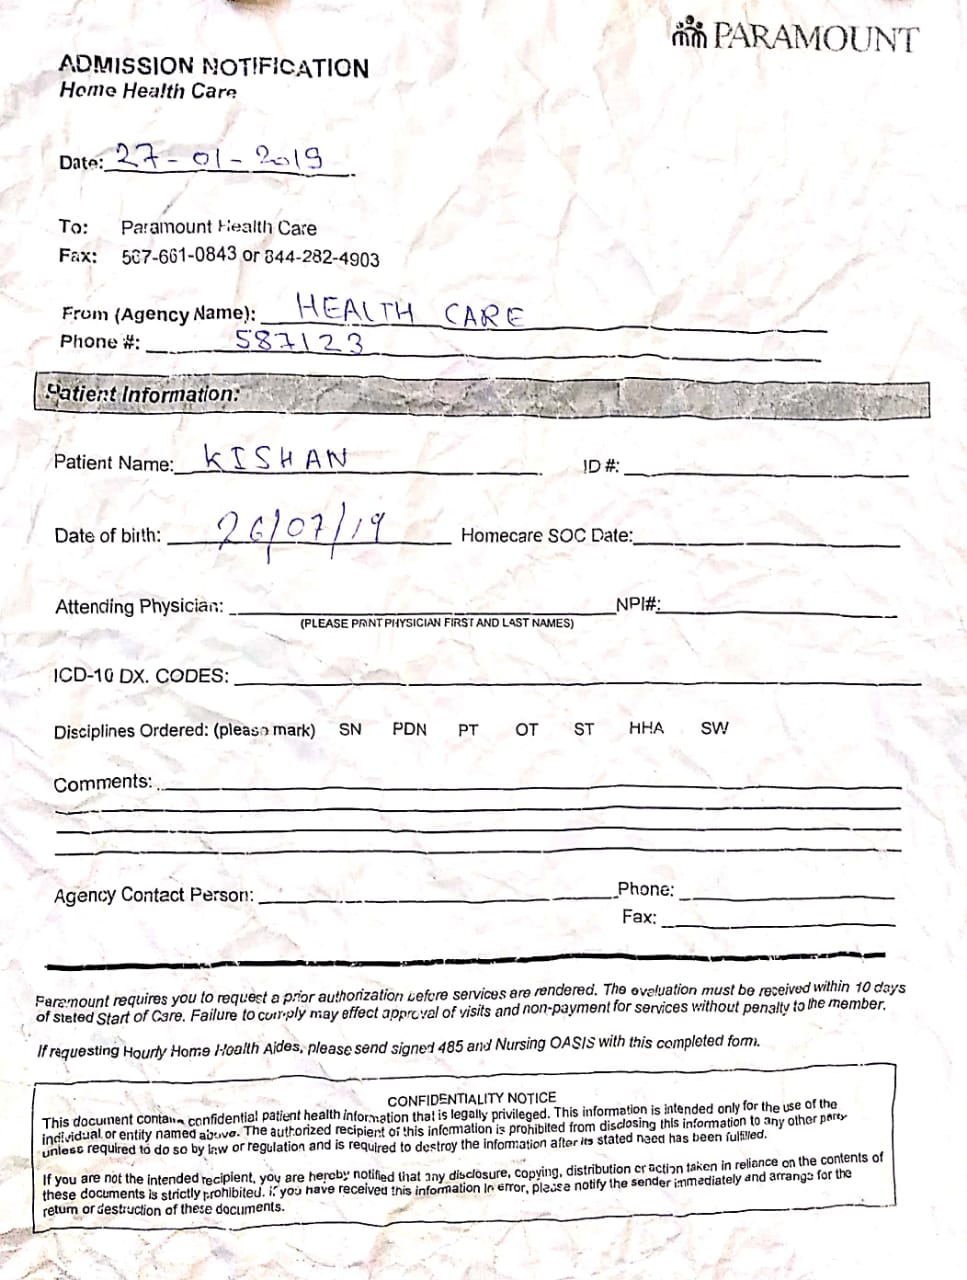 PARAMOUNT
ADMISSION NOTIFICATION
Home Health Care
Date: 27-01-2019
To: Paramount Health Care
Fax: 567-661-0843 or 844-282-4903
From (Agency Name): HEALTH CARE
Phone #: 587123
Patient Information:
Patient Name: KISHAN ID #:
Date of birth: 26/07/19 Homecare SOC Date:
Attending Physician: NPI#:
(PLEASE PRINT PHYSICIAN FIRST AND LAST NAMES)
ICD-10 DX. CODES:
Disciplines Ordered: (please mark) SN PDN PT OT ST HHA SW
Comments:
Agency Contact Person: Phone:
Fax:
Paramount requires you to request a prior authorization before services are rendered. The evaluation must be received within 10 days
of stated Start of Care. Failure to comply may effect approval of visits and non-payment for services without penalty to the member.
If requesting Hourly Home Health Aides, please send signed 485 and Nursing OASIS with this completed form.
CONFIDENTIALITY NOTICE
This document contains confidential patient health information that is legally privileged. This information is intended only for the use of the
individual or entity named above. The authorized recipient of this information is prohibited from disclosing this information to any other party
unless required to do so by law or regulation and is required to destroy the information after its stated need has been fulfilled.
If you are not the intended recipient, you are hereby notified that any disclosure, copying, distribution or action taken in reliance on the contents of
these documents is strictly prohibited. If you have received this information in error, please notify the sender immediately and arrange for the
return or destruction of these documents.